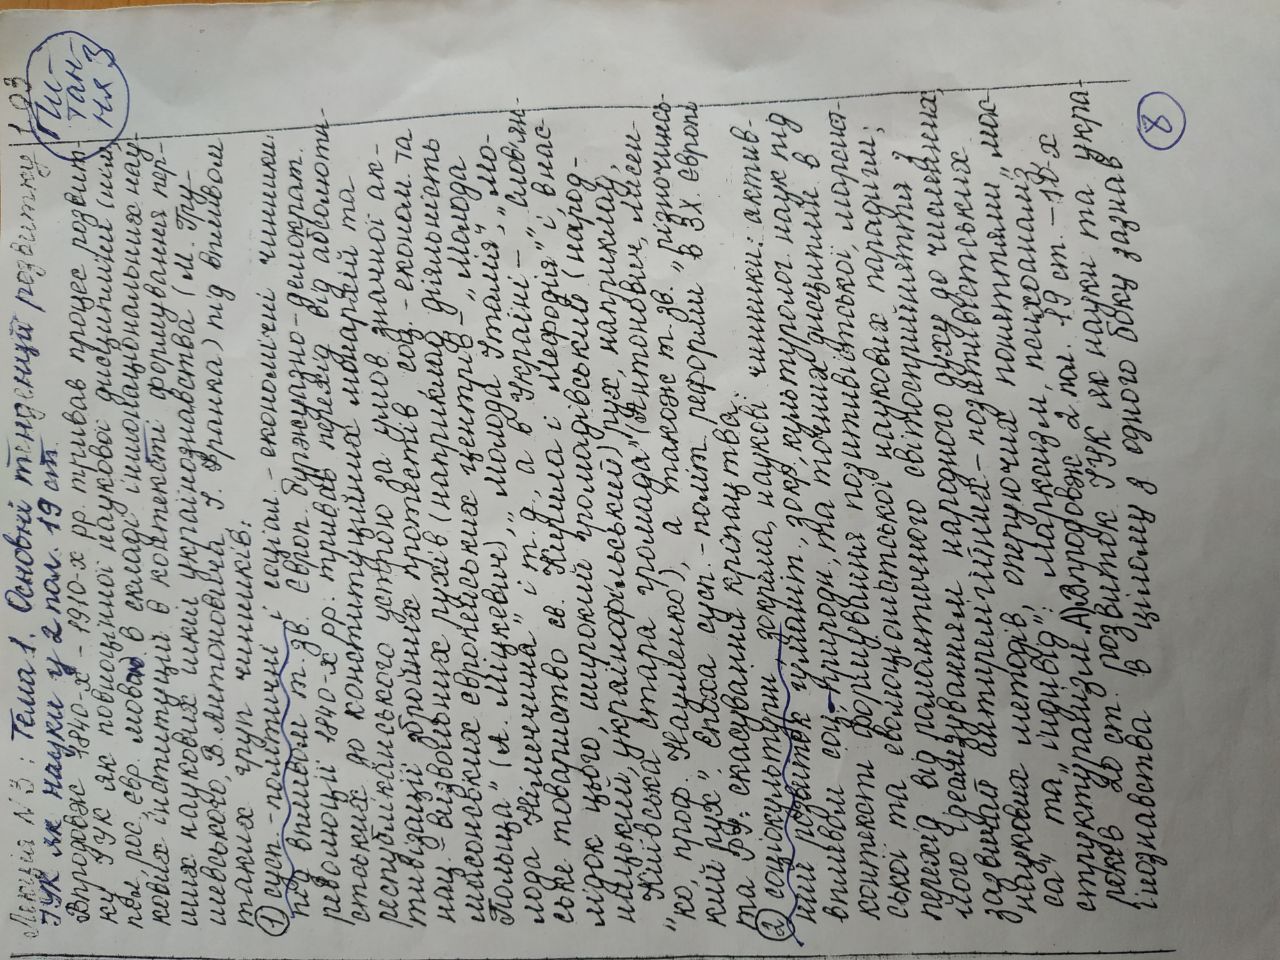 Лекція N 3: Тема 1. Основні тенденції розвитку
1.03
ІУК як науки у 2 пол. 19 ст.
Пи-
тан-
ня 3
Впродовж 1840-х – 1910-х рр. тривав процес розвит-
ку ІУК як повноцінної наукової дисципліни (нім.,
пол., рос., євр. мовою) в складі інонаціональних нау-
кових інституцій в контексті формування пер-
ших наукових шкіл українознавства (М. Гру-
шевського, В. Антоновича, І. Франка) під впливом
таких груп чинників:
① сусп.-політичні і соціал.-економічні чинники:
під впливом т. зв. Європ. буржуазно-демократ.
революції 1840-х рр. тривав перехід від абсолюти-
стських до конституційних монархій та
республіканського устрою за умов значної ак-
тивізації збройних протестів, соц.-економ. та
нац.-визвольних рухів (наприклад, діяльність
масонських європейських центрів – „Молода
Польща" (А. Міцкевич), „Молода Італія", „Мо-
лода Німеччина" і т. д., а в Україні – „Слов'ян-
ське товариство св. Кирила і Мефодія" і, внас-
лідок цього, широкий громадівський (народ-
ницький, українофільський) рух, наприклад,
"Київська стара громада" (Антонович, Лисен-
ко, проф. Науменко), а також т. зв. „різночинсь-
кий рух". Епоха сусп.-політ. реформ в Зх. Європі
та РІ: скасування кріпацтва.
② соціокультурні, зокрема, наукові чинники: актив-
ний розвиток гуманіт., зокр., культуролог. наук під
впливом соц.-природн., та точних дисциплін в
контексті формування позитивістської, марксист-
ської та еволюціоністської наукових парадигм;
перехід від романтичного світосприйняття з
його ідеалізуванням народного духу до численних,
зазвичай антирелігійних – позитивістських
наукових методів, оперуючих поняттями „мас-
са" та „індивід": марксизм, психоаналіз,
структуралізм. А) Впродовж 2 пол. 19 ст. – 10-х
років 20 ст. розвиток ІУК як науки та укра-
їнознавства в цілому з одного боку зазнав
8